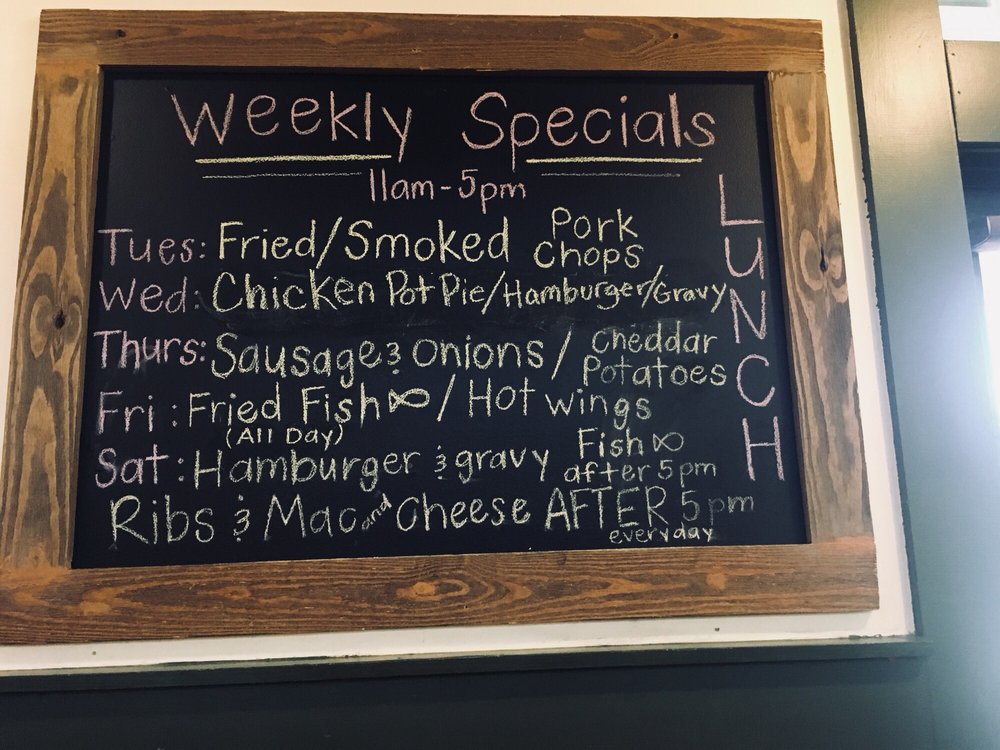 Weekly Specials
11am-5pm
LUNCH
Tues: Fried/Smoked Pork Chops
Wed: Chicken Pot Pie/Hamburger/Gravy
Thurs: Sausage & Onions / Cheddar Potatoes
Fri: Fried Fish / Hot Wings
(All Day)
Sat: Hamburger & gravy Fish after 5pm
Ribs & Mac and Cheese AFTER 5pm
everyday